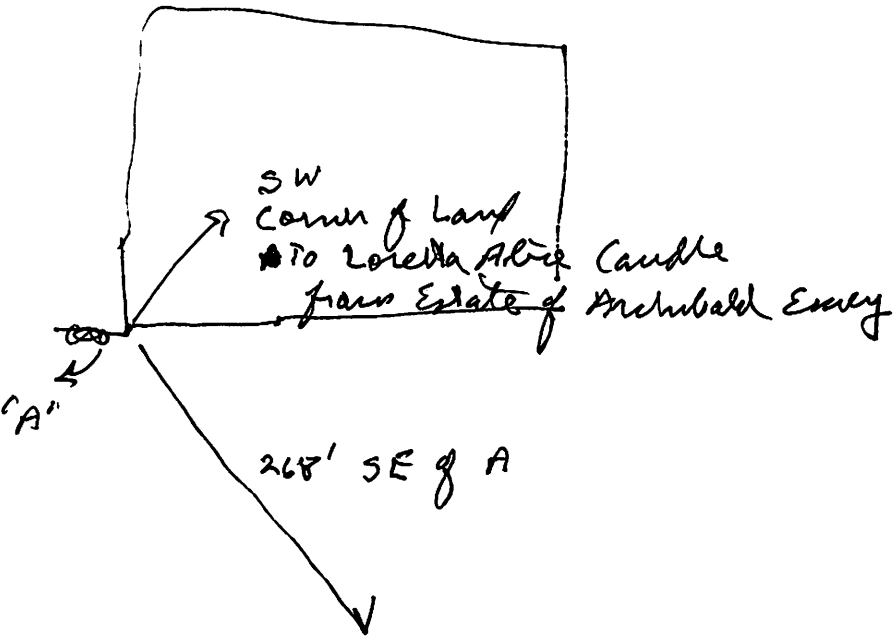 SW
Corner of Land
To Loretta Alice Caudle
from Estate of Archibald
"A"
268' SE of A